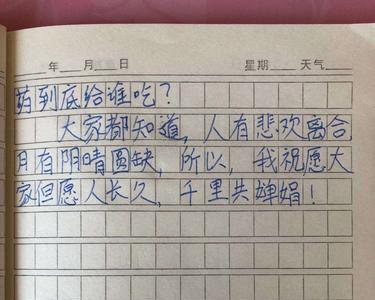 年 月 日 星期 天气
药到底给谁吃？
大家都知道，人有悲欢离合
月有阴晴圆缺，所以，我祝愿大
家但愿人长久，千里共婵娟！